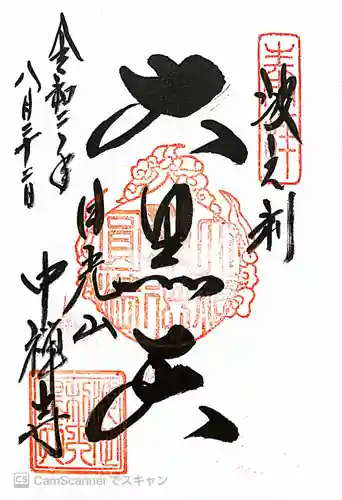 波之利
大黒天
日光山
中禅寺
令和二年
八月二十二日
CS CamScanner でスキャン